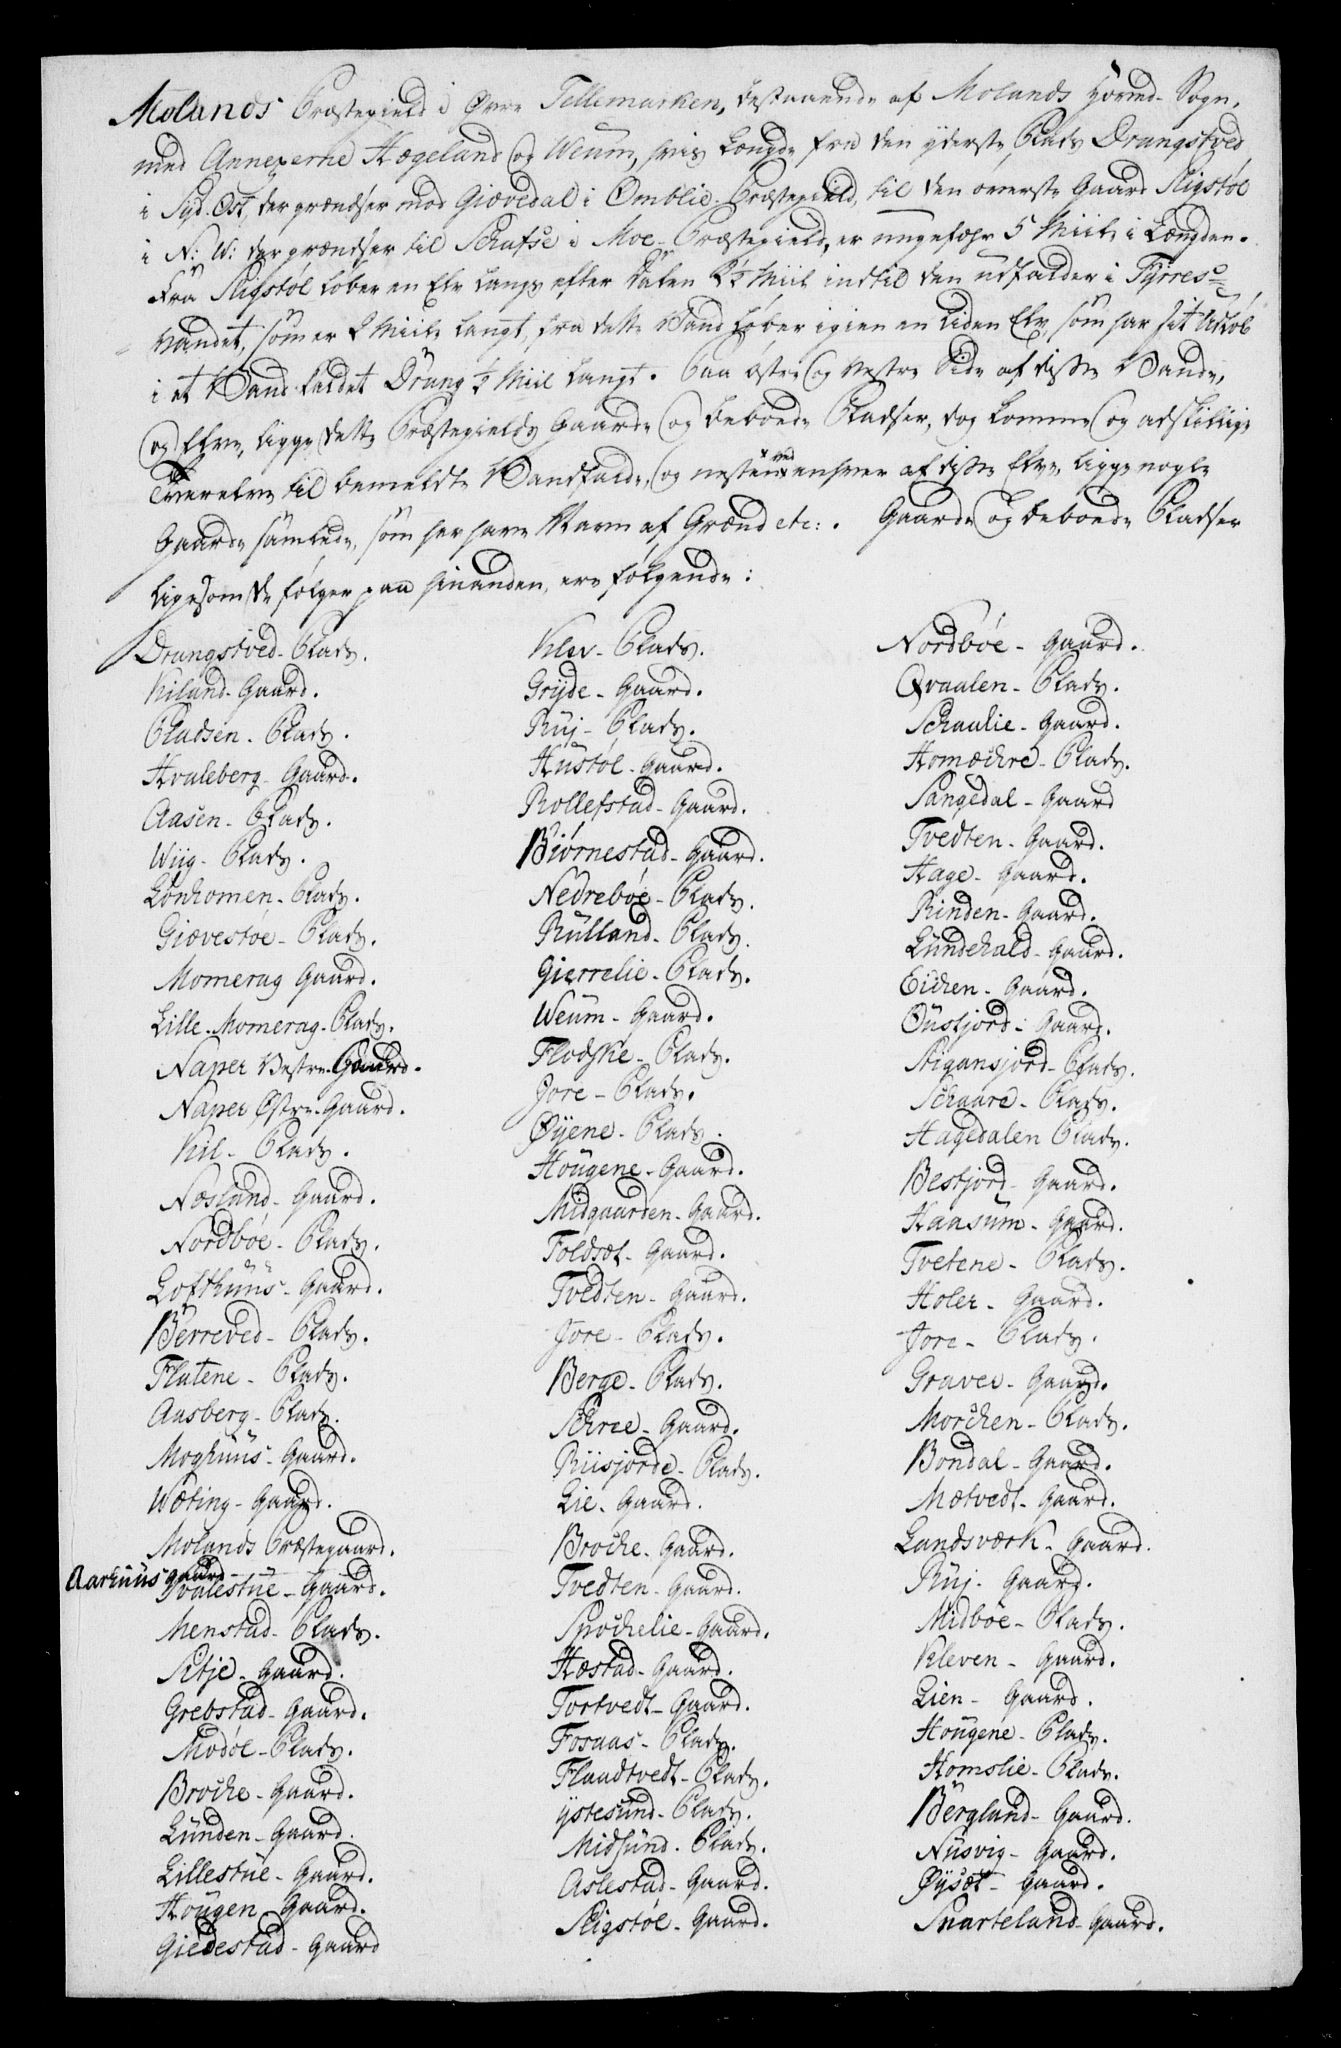 Molands Præstegield i Øvre Tellemarken, bestaaende af Molands Hoved-Sogn,
med Annexerne Hægeland og Weum, hvis Længde fra den yderste Plads Drangstved
i Syd-Ost, der grændser mod Giøvedal i Omblie Præstegield, til den øverste Gaard Sligstøl
i N: W: der grændser til Schafse i Moe Præstegield, er ungefæhr 5 Miile i Længden.
Fra Sligstøl løber en Elv langs efter Dalen 2½ Miil indtil den udfalder i Tyrres-
Vandet, som er 2 Miile langt, fra dette Vand løber igien en liden Elv, som har sit Udløb
i et Vand kaldet Drang ½ Miil langt. Paa østre og vestre Side af disse Vande,
og Elve, ligge dette Præstegields Gaarde og beboede Pladser, dog komme og adskillige
Tverelve til bemeldte Vandfalde, og nesten ved enhver af disse Elve, ligge nogle
Gaarde samlede, som her have Navn af Grænd etc: . Gaarde og beboede Pladser
ligesom de følger paa hinanden, ere følgende:
Drangstved - Plads.
Kiland - Gaard.
Pladsen - Plads.
Hvaleberg - Gaard.
Aasen - Plads.
Wiig - Plads.
Lønhomen - Plads.
Giævestøe - Plads.
Momerag Gaard.
Lille-Momerag - Plads.
Naper Vestre Gaard.
Naper Østre - Gaard.
Kil - Plads.
Næsland - Gaard.
Nordbøe - Plads.
Lofthuus - Gaard.
Berreved - Plads.
Flatene - Plads.
Aasberg - Plads.
Moghuus - Gaard.
Wæting - Gaard.
Molands Præstegaard.
Aarhuus gaard
Tvalestue - Gaard.
Menstad - Plads.
Sitje - Gaard.
Grebstad - Gaard.
Modøl - Plads.
Broche - Gaard.
Lunden - Gaard.
Lillestue - Gaard.
Hougen - Gaard.
Giedestad - Gaard
Klev - Plads.
Gryde - Gaard.
Ruj - Plads.
Hustøl - Gaard.
Rollefstad - Gaard.
Biørnestad - Gaard.
Nedrebøe - Plads.
Rulland - Plads.
Gierrelie - Plads.
Weum - Gaard.
Flodske - Plads.
Jore - Plads.
Øyene - Plads.
Hougene - Gaard.
Midgaarden - Gaard.
Foldsæt - Gaard.
Tvedten - Gaard.
Jore - Plads.
Berge - Plads.
Schree - Gaard.
Riisjorde - Plads.
Lie - Gaard.
Broche - Gaard.
Tvedten - Gaard.
Spochelie - Gaard.
Hæstad - Gaard.
Tortvedt - Gaard.
Fosaas - Plads.
Flaadtvedt - Plads.
Ystesund - Plads.
Midsund - Plads.
Aslestad - Gaard.
Sligstøl - Gaard.
Nordbøe - Gaard.
Qvaalen - Plads.
Schaalie - Gaard.
Homæchre - Plads.
Sangedal - Gaard
Tvedten - Gaard.
Hage - Gaard.
Rinden - Gaard.
Lundekald - Gaard.
Eichen - Gaard.
Øusfjord - Gaard.
Stigansjord - Plads.
Schaare - Plads.
Hagedalen Plads.
Bestjord - Gaard.
Haasum - Gaard.
Tvetene - Plads.
Holer - Gaard.
Jore - Plads.
Graver - Gaard.
Morchen - Plads.
Bondal - Gaard.
Mætvedt - Gaard.
Landsværk - Gaard.
Ruj - Gaard.
Midbøe - Plads.
Kleven - Gaard.
Lien - Gaard.
Hougene - Plads.
Homslie - Plads.
Bergland - Gaard.
Nusvig - Gaard.
Øysæt - Gaard.
Snarteland - Gaard.